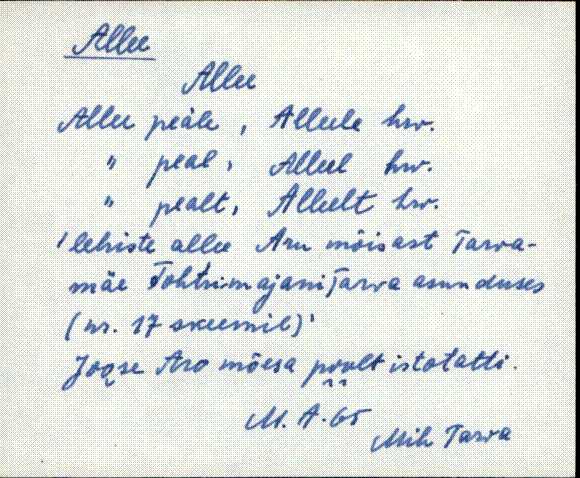 Allee
Allee
Allee peäle, Alleele hrv.
" peal, Alleel hrv.
" pealt, Alleelt hrv.
'lehiste allee Aru mõisast Tarva-
mäe Tohtrimajani Tarva asunduses
(nr. 17 skeemil)'
Joose Aro mõesa poolt istotatti.
M. A. 65
Mih Tarva